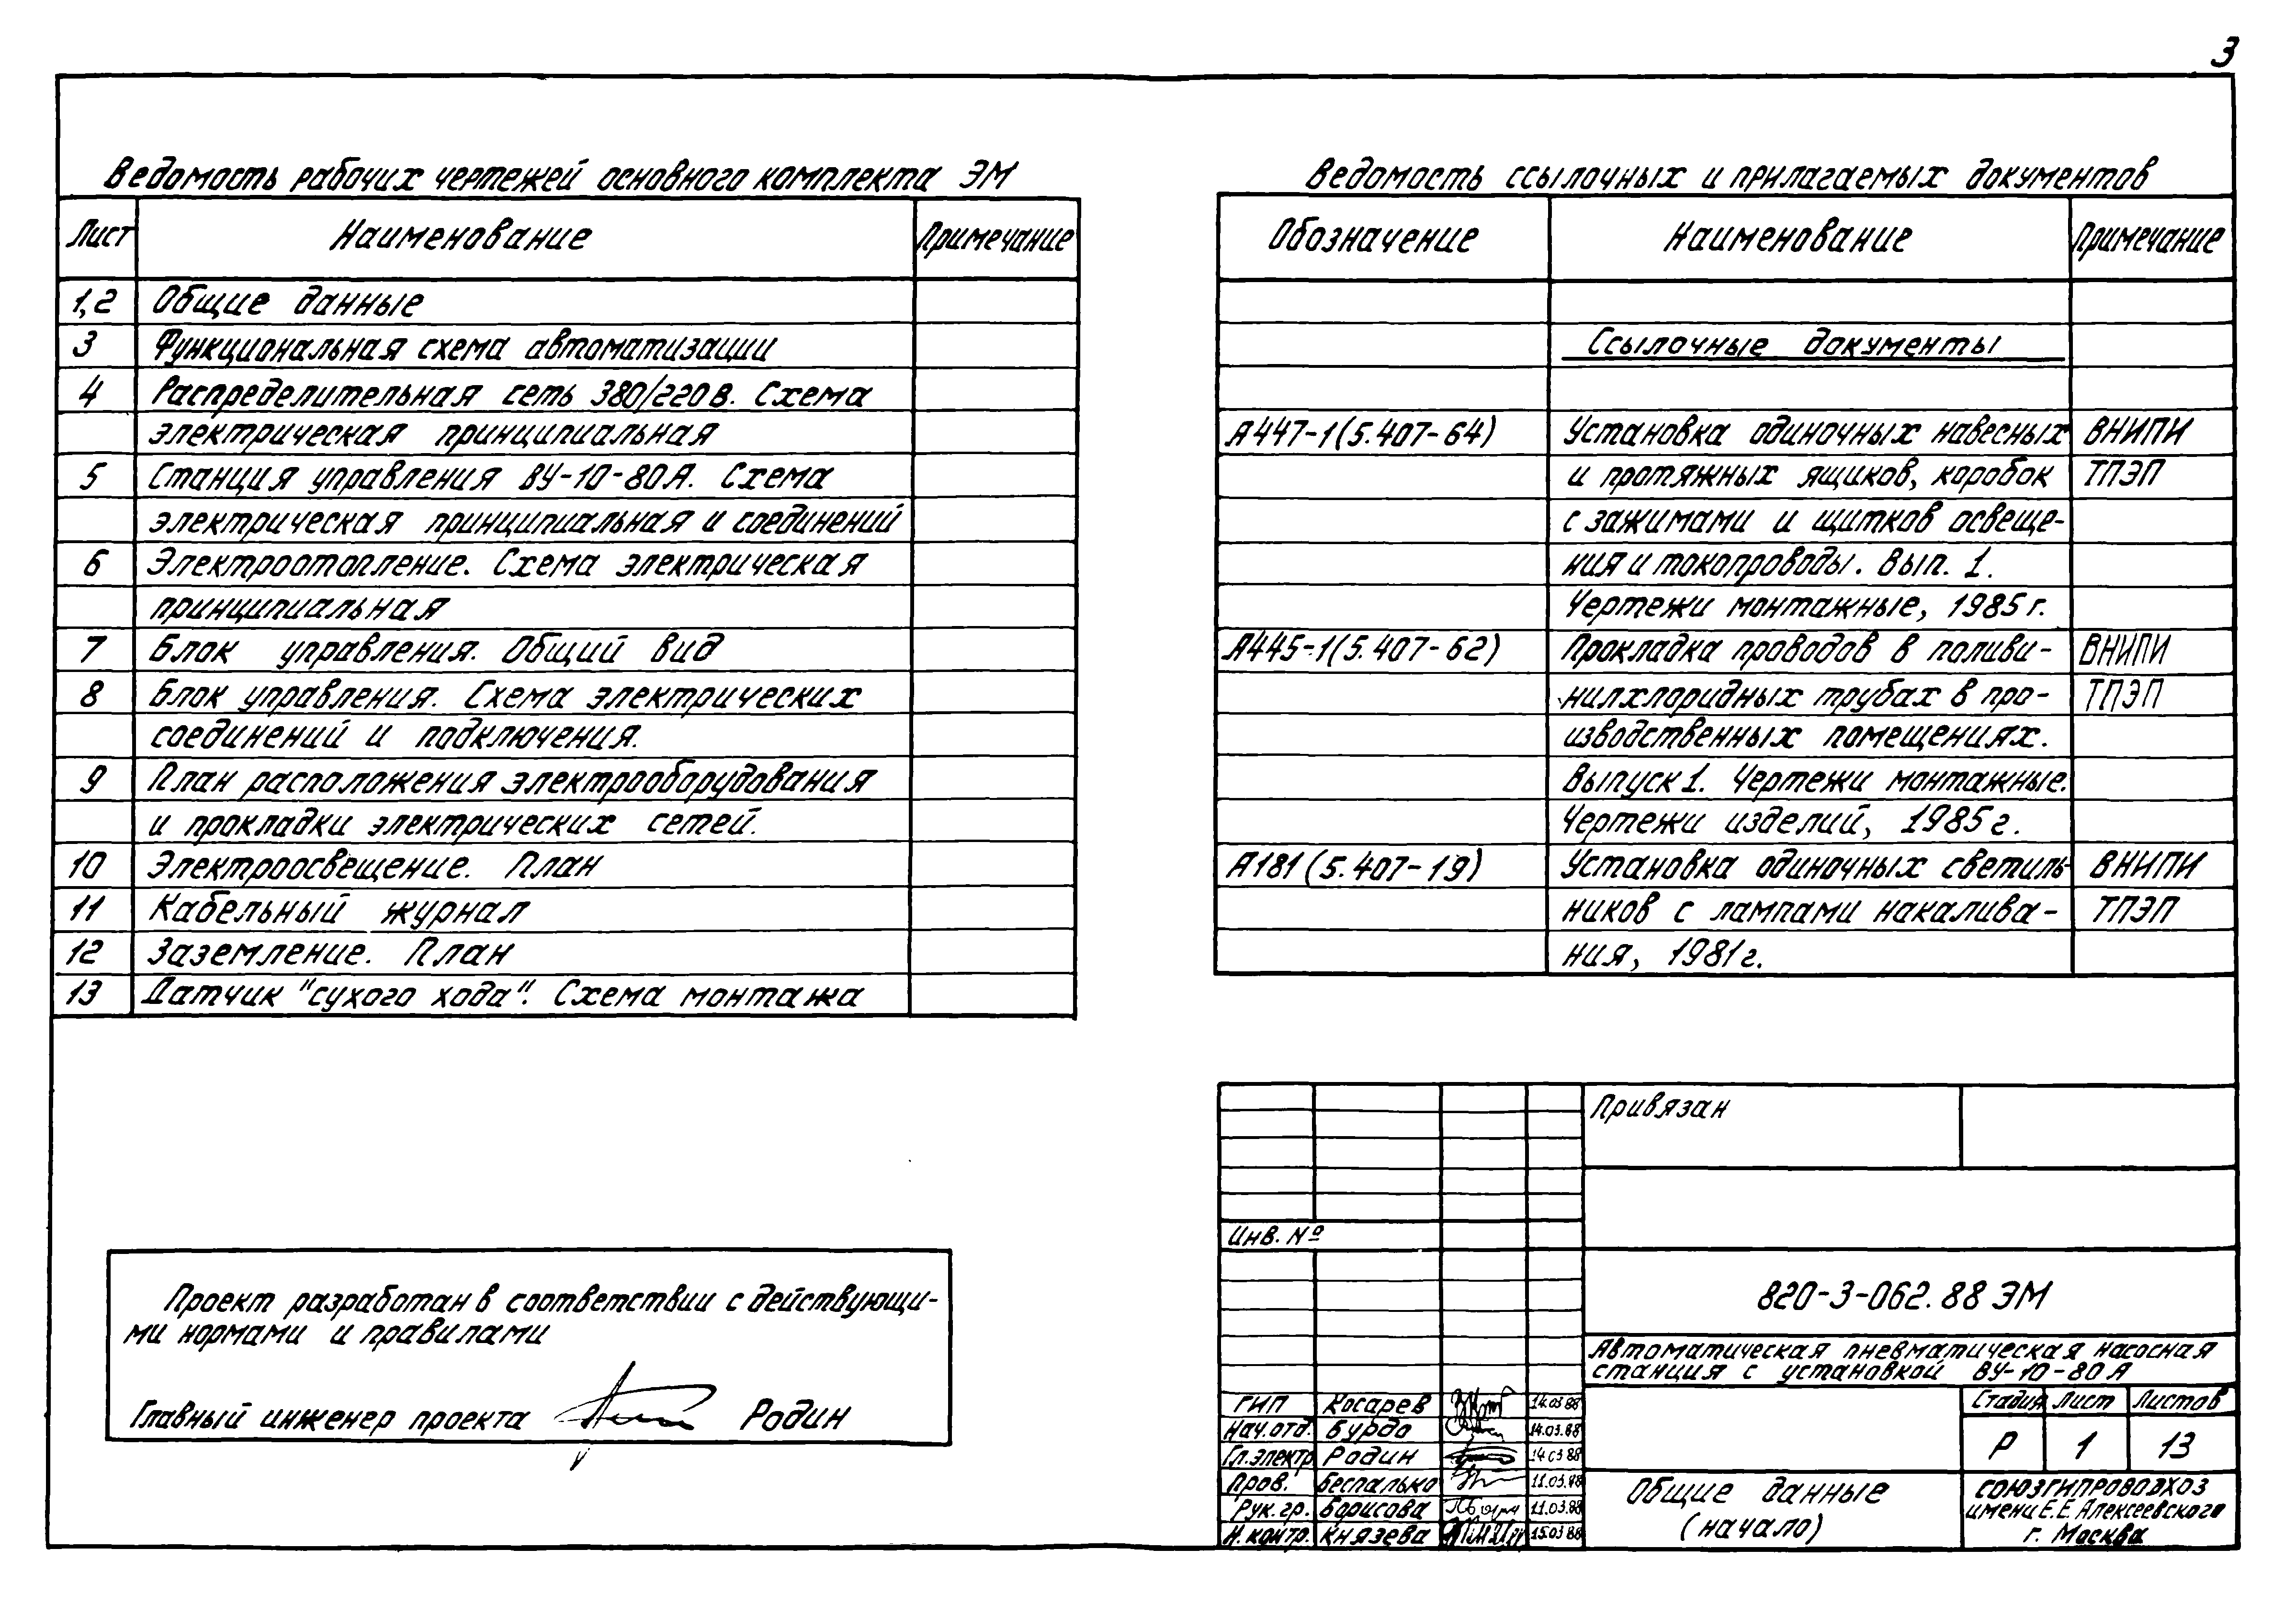 3
Ведомость рабочих чертежей основного комплекта ЭМ
Лист Наименование Примечание
1,2 Общие данные
3 Функциональная схема автоматизации
4 Распределительная сеть 380/220В. Схема
электрическая принципиальная
5 Станция управления ВУ-10-80А. Схема
электрическая принципиальная и соединений
6 Электроотопление. Схема электрическая
принципиальная
7 Блок управления. Общий вид
8 Блок управления. Схема электрических
соединений и подключения.
9 План расположения электрооборудования
и прокладки электрических сетей.
10 Электроосвещение. План
11 Кабельный журнал
12 Заземление. План
13 Датчик "сухого хода". Схема монтажа
Ведомость ссылочных и прилагаемых документов
Обозначение Наименование Примечание
Ссылочные документы
А447-1(5.407-64) Установка одиночных навесных ВНИПИ
и протяжных ящиков, коробок ТПЭП
с зажимами и щитков освеще-
ния и токопроводы. Вып. 1.
Чертежи монтажные, 1985г.
А445-1(5.407-62) Прокладка проводов в поливи- ВНИПИ
нилхлоридных трубах в про- ТПЭП
изводственных помещениях.
Выпуск 1. Чертежи монтажные.
Чертежи изделий, 1985г.
А181(5.407-19) Установка одиночных светиль- ВНИПИ
ников с лампами накалива- ТПЭП
ния, 1981г.
Проект разработан в соответствии с действующи-
ми нормами и правилами
Главный инженер проекта Родин
Привязан
Инв. №
820-3-062.88 ЭМ
Автоматическая пневматическая насосная
станция с установкой ВУ-10-80А
ГИП Косарев 14.03.88
Нач.отд. Бурдо 14.03.88
Гл.электр Родин 14.03.88
Пров. Беспалько 11.03.88
Рук.гр. Борисова 11.03.88
Н.контр. Князева 15.03.88
Стадия Лист Листов
Р 1 13
Общие данные
(начало)
СОЮЗГИПРОВОДХОЗ
имени Е.Е. Алексеевского
г. Москва